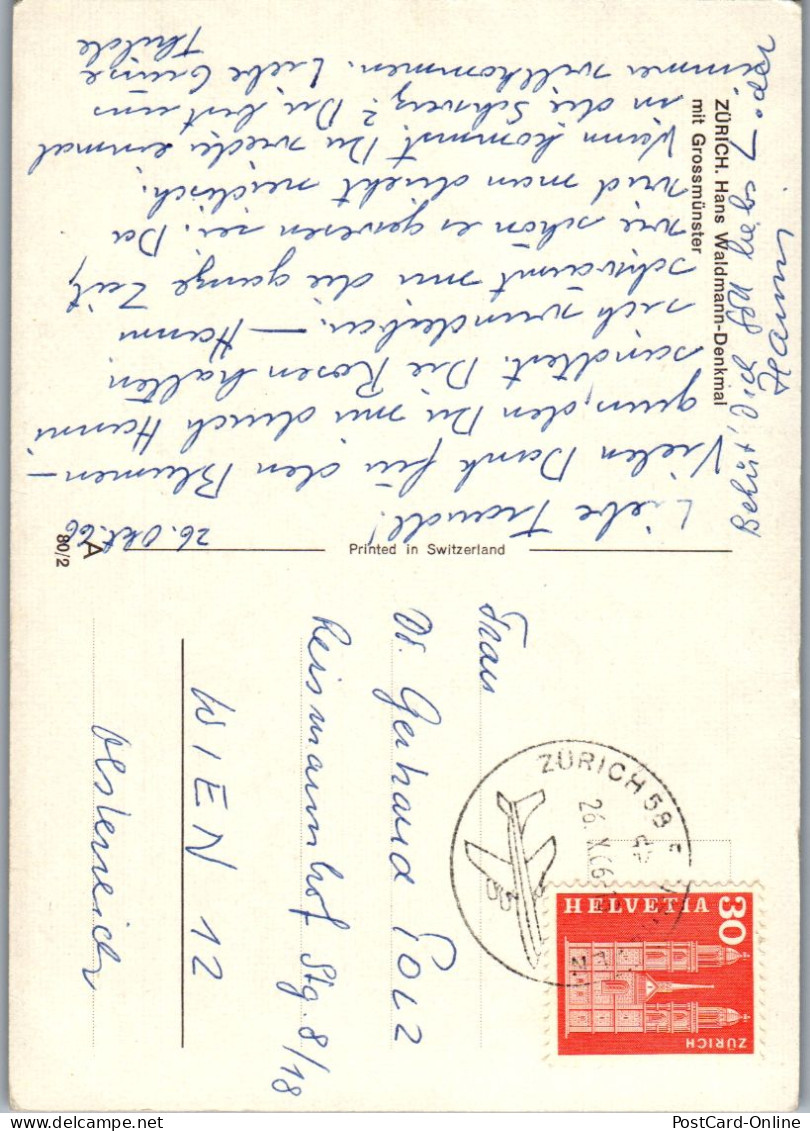 ZÜRICH. Hans Waldmann-Denkmal
mit Grossmünster
26. Okt. 66
Liebe Traudl!
Vielen Dank für den Blumen-
gruss, den Du mir durch Hanni
sandtest. Die Rosen halten
sich wunderbar. – Hanni
schwärmt mir die ganze Zeit,
wie schön es gewesen sei. Da
wird man direkt neidisch.
Wann kommst Du wieder einmal
in die Schweiz? Du bist uns
immer willkommen. Liebe Grüsse
Thilde
Behüt' Dich Gott
Hanni
A
80/2
Printed in Switzerland
Frau
Dr. Gerhard POLZ
Reismannhof Stg. 8/18
WIEN 12
Oesterreich
ZÜRICH 58
26.X.66
HELVETIA
30
ZÜRICH
PostCard-Online